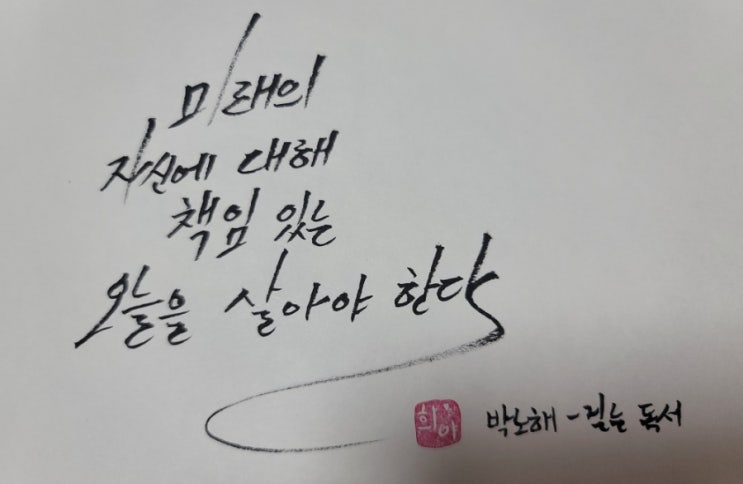 미래의
자신에 대해
책임 있는
오늘을 살아야 한다
희야
박노해 - 걷는 독서